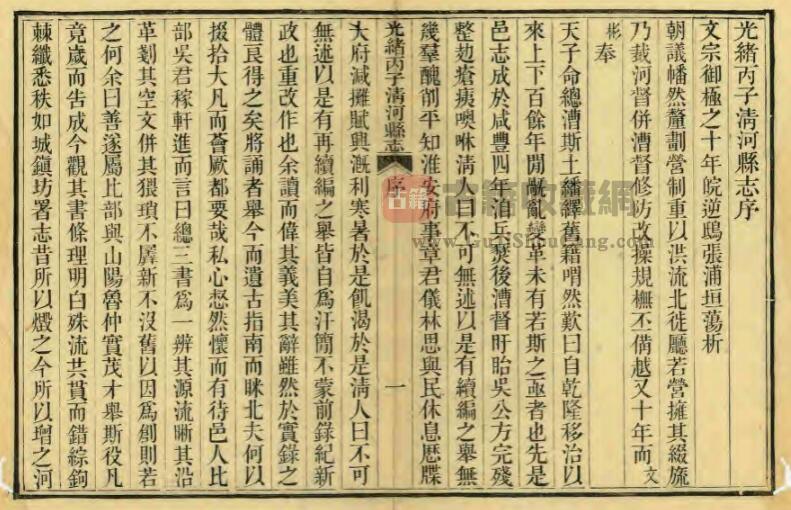 光緒丙子清河縣志序
文宗御極之十年皖逆鴟張浦垣蕩析
朝議幡然釐劃營制重以洪流北徙廳若營擁其綴旒
乃裁河督併漕督修防改操規橅丕備越又十年而文
彬奉
天子命總漕斯土繙繹舊籍喟然歎曰自乾隆移治以
來上下百餘年閒睋亂變革未有若斯之亟者也先是
邑志成於咸豐四年洎兵燹後漕督盱眙吳公方完殘
整勊瘡痍噢咻清人曰不可無述以是有續編之舉無
幾羣醜削平知淮安府事章君儀林思與民休息歷牒
光緒丙子清河縣志 序 一
大府減攤賦興漑利寒暑於是飢渴於是清人曰不可
無述以是有再續編之舉皆自為汗簡不蒙前錄紀新
政也重改作也余讀而偉其義美其辭雖然於實錄之
體良得之矣將誦者舉今而遺古指南而眯北夫何以
掇拾大凡而薈厥都要哉私心惄然懷而有待邑人比
部吳君稼軒進而言曰總三書為一辨其源流晰其沿
革剗其空文併其猥瑣不羼新不沒舊以因為創則若
之何余曰善遂屬比部與山陽魯仲實茂才舉斯役凡
竟歲而告成今觀其書條理明白殊流共貫而錯綜鉤
棘纖悉秩如城鎮坊署志昔所以燬之今所以增之河
古籍收藏網
www.GuJiShouCang.com